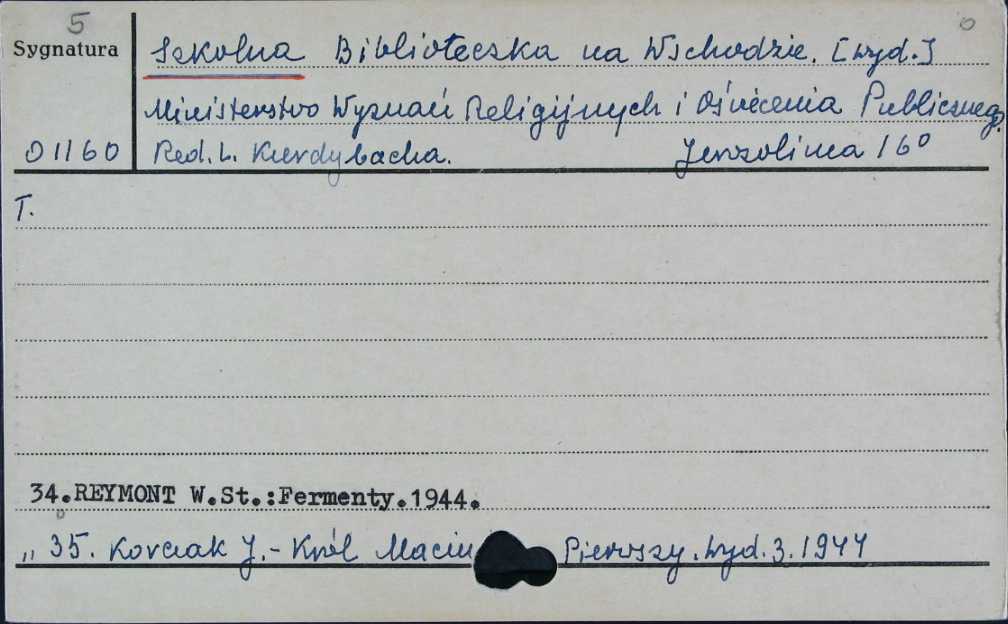 5
Sygnatura
Szkolna Biblioteczka na Wschodzie. [wyd.]
Ministerstwo Wyznań Religijnych i Oświecenia Publicznego
01160 Red. L. Kurdybacha. Jerozolima 16°
T.
34.REYMONT W.St.:Fermenty.1944.
„ 35. Korczak J. - Król Maciu Pierwszy. Wyd. 3. 1944